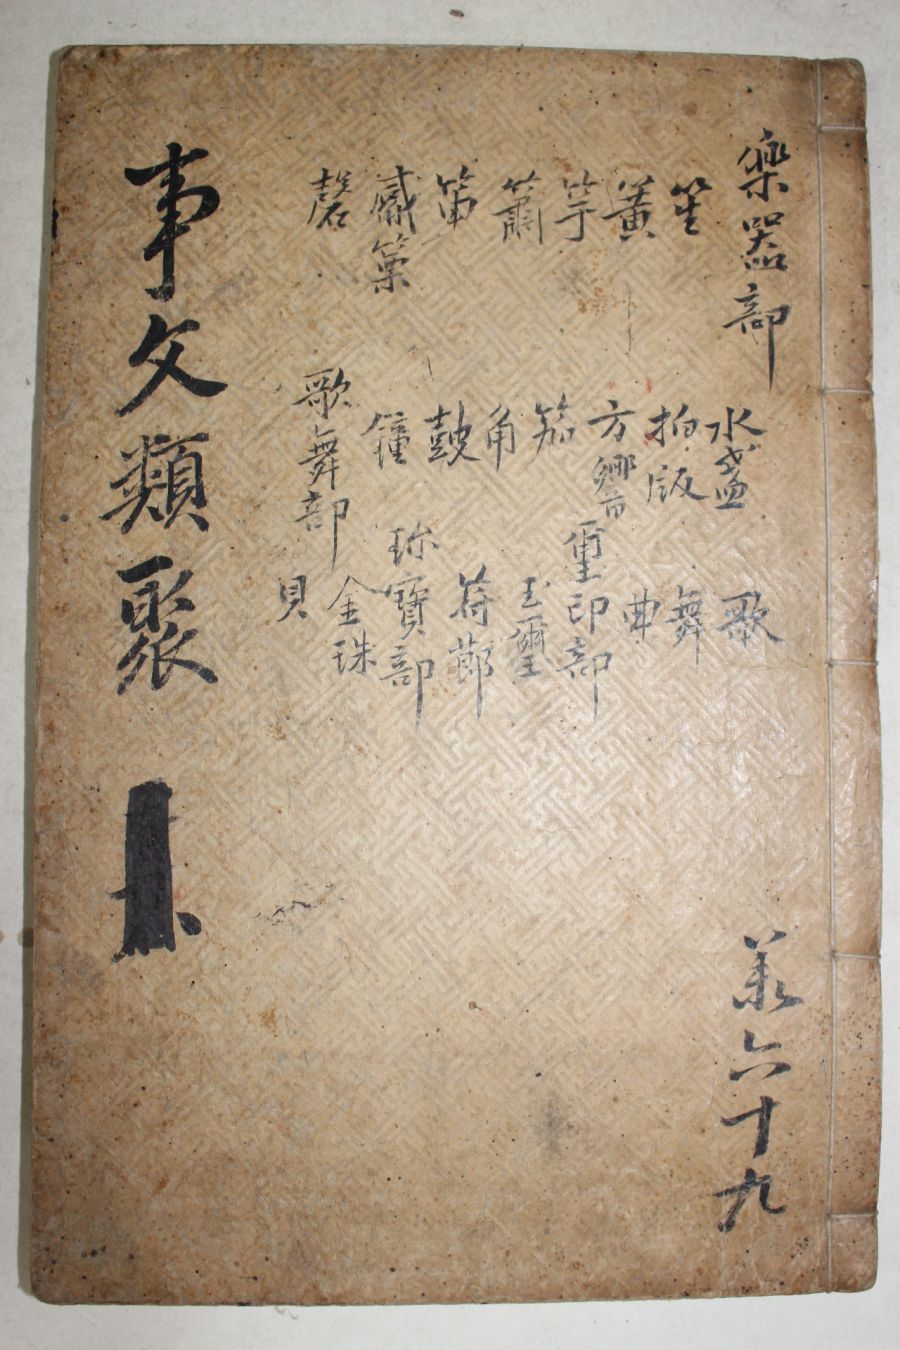 樂器部
笙
簧
竽
簫
笛
篥
磬
水盞
拍版
方響
笳
角
鼓
鐘
歌舞部
歌
舞
曲
璽印部
玉璽
符節
珍寶部
金珠
貝
六十九
事文類聚